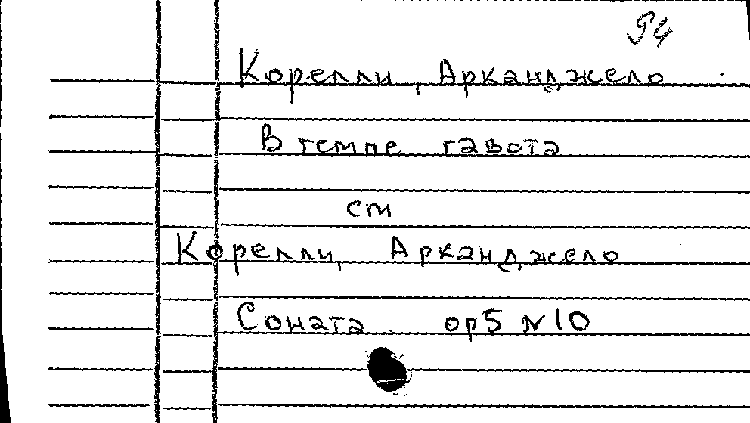 94
Корелли, Арканджело
В темпе гавота
см
Корелли, Арканджело
Соната ор5 №10